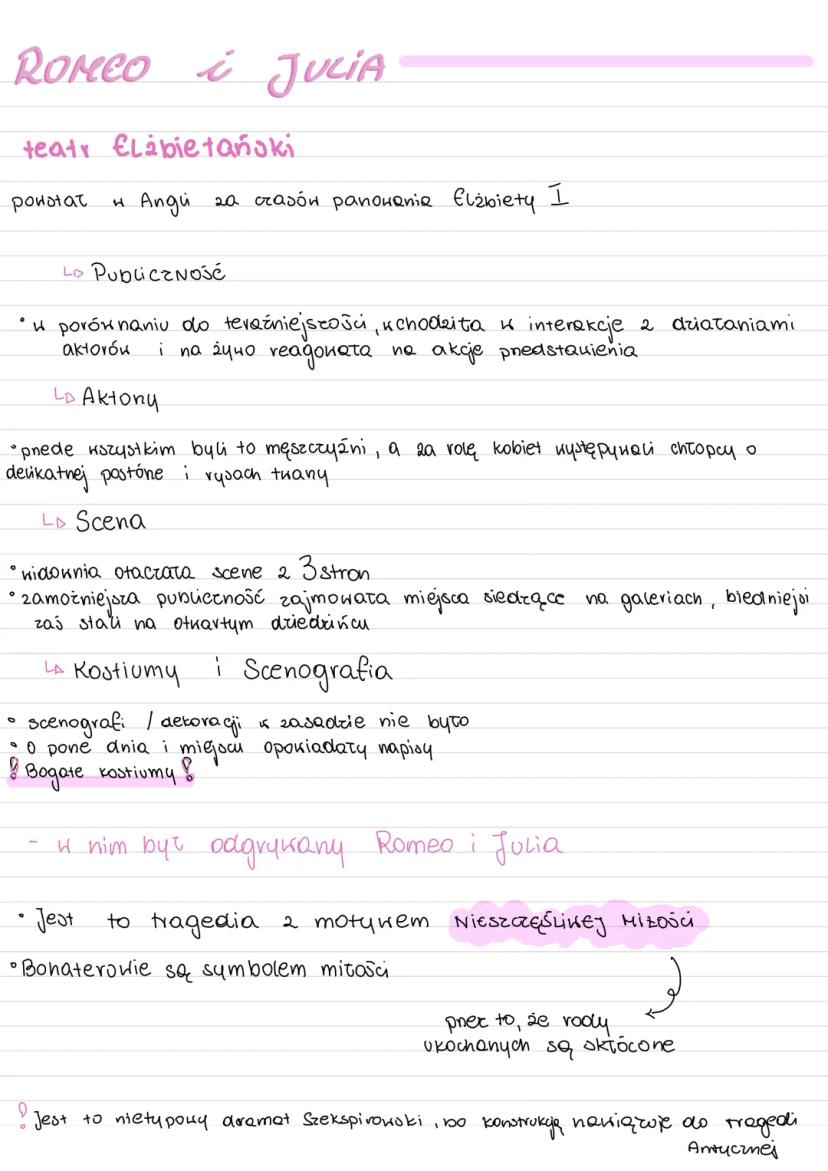 Romeo i Julia
teatr Elżbietański
powstał w Anglii za czasów panowania Elżbiety I
Publiczność
• w porównaniu do teraźniejszości, wchodziła w interakcje z działaniami
aktorów i na żywo reagowała na akcje przedstawienia
Aktorzy
• przede wszystkim byli to męszczyźni, a za rolę kobiet występywali chłopcy o
delikatnej postórze i rysach twarzy
Scena
• widownia otaczała scene z 3 stron
• zamożniejsza publiczność zajmowała miejsca siedzące na galeriach, biedniejsi
zaś stali na otwartym dziedzińcu
Kostiumy i Scenografia
• scenografi / dekoracji w zasadzie nie było
• o porze dnia i miejscu opowiadały napisy
! Bogate kostiumy !
- w nim był odgrywany Romeo i Julia
• Jest to tragedia z motywem Nieszczęśliwej Miłości
• Bohaterowie są symbolem miłości
przez to, że rody
ukochanych są skłócone
! Jest to nietypowy dramat Szekspirowski, bo konstrukcją nawiązuje do tragedi
Antycznej